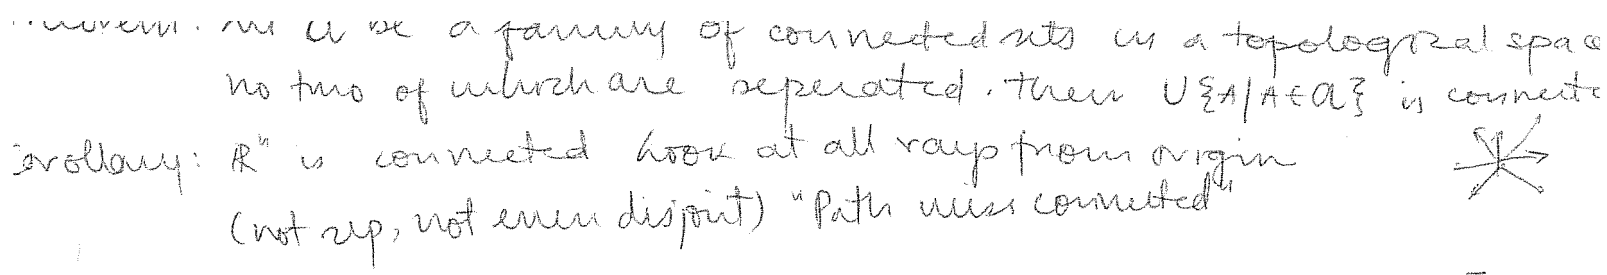 Theorem: Let 𝒜 be a family of connected sets in a topological space
no two of which are seperated. Then ∪{A|A∈𝒜} is connecte
Corollary: ℝⁿ is connected Look at all rays from origin
(not sep, not even disjoint) "Path wise connected"